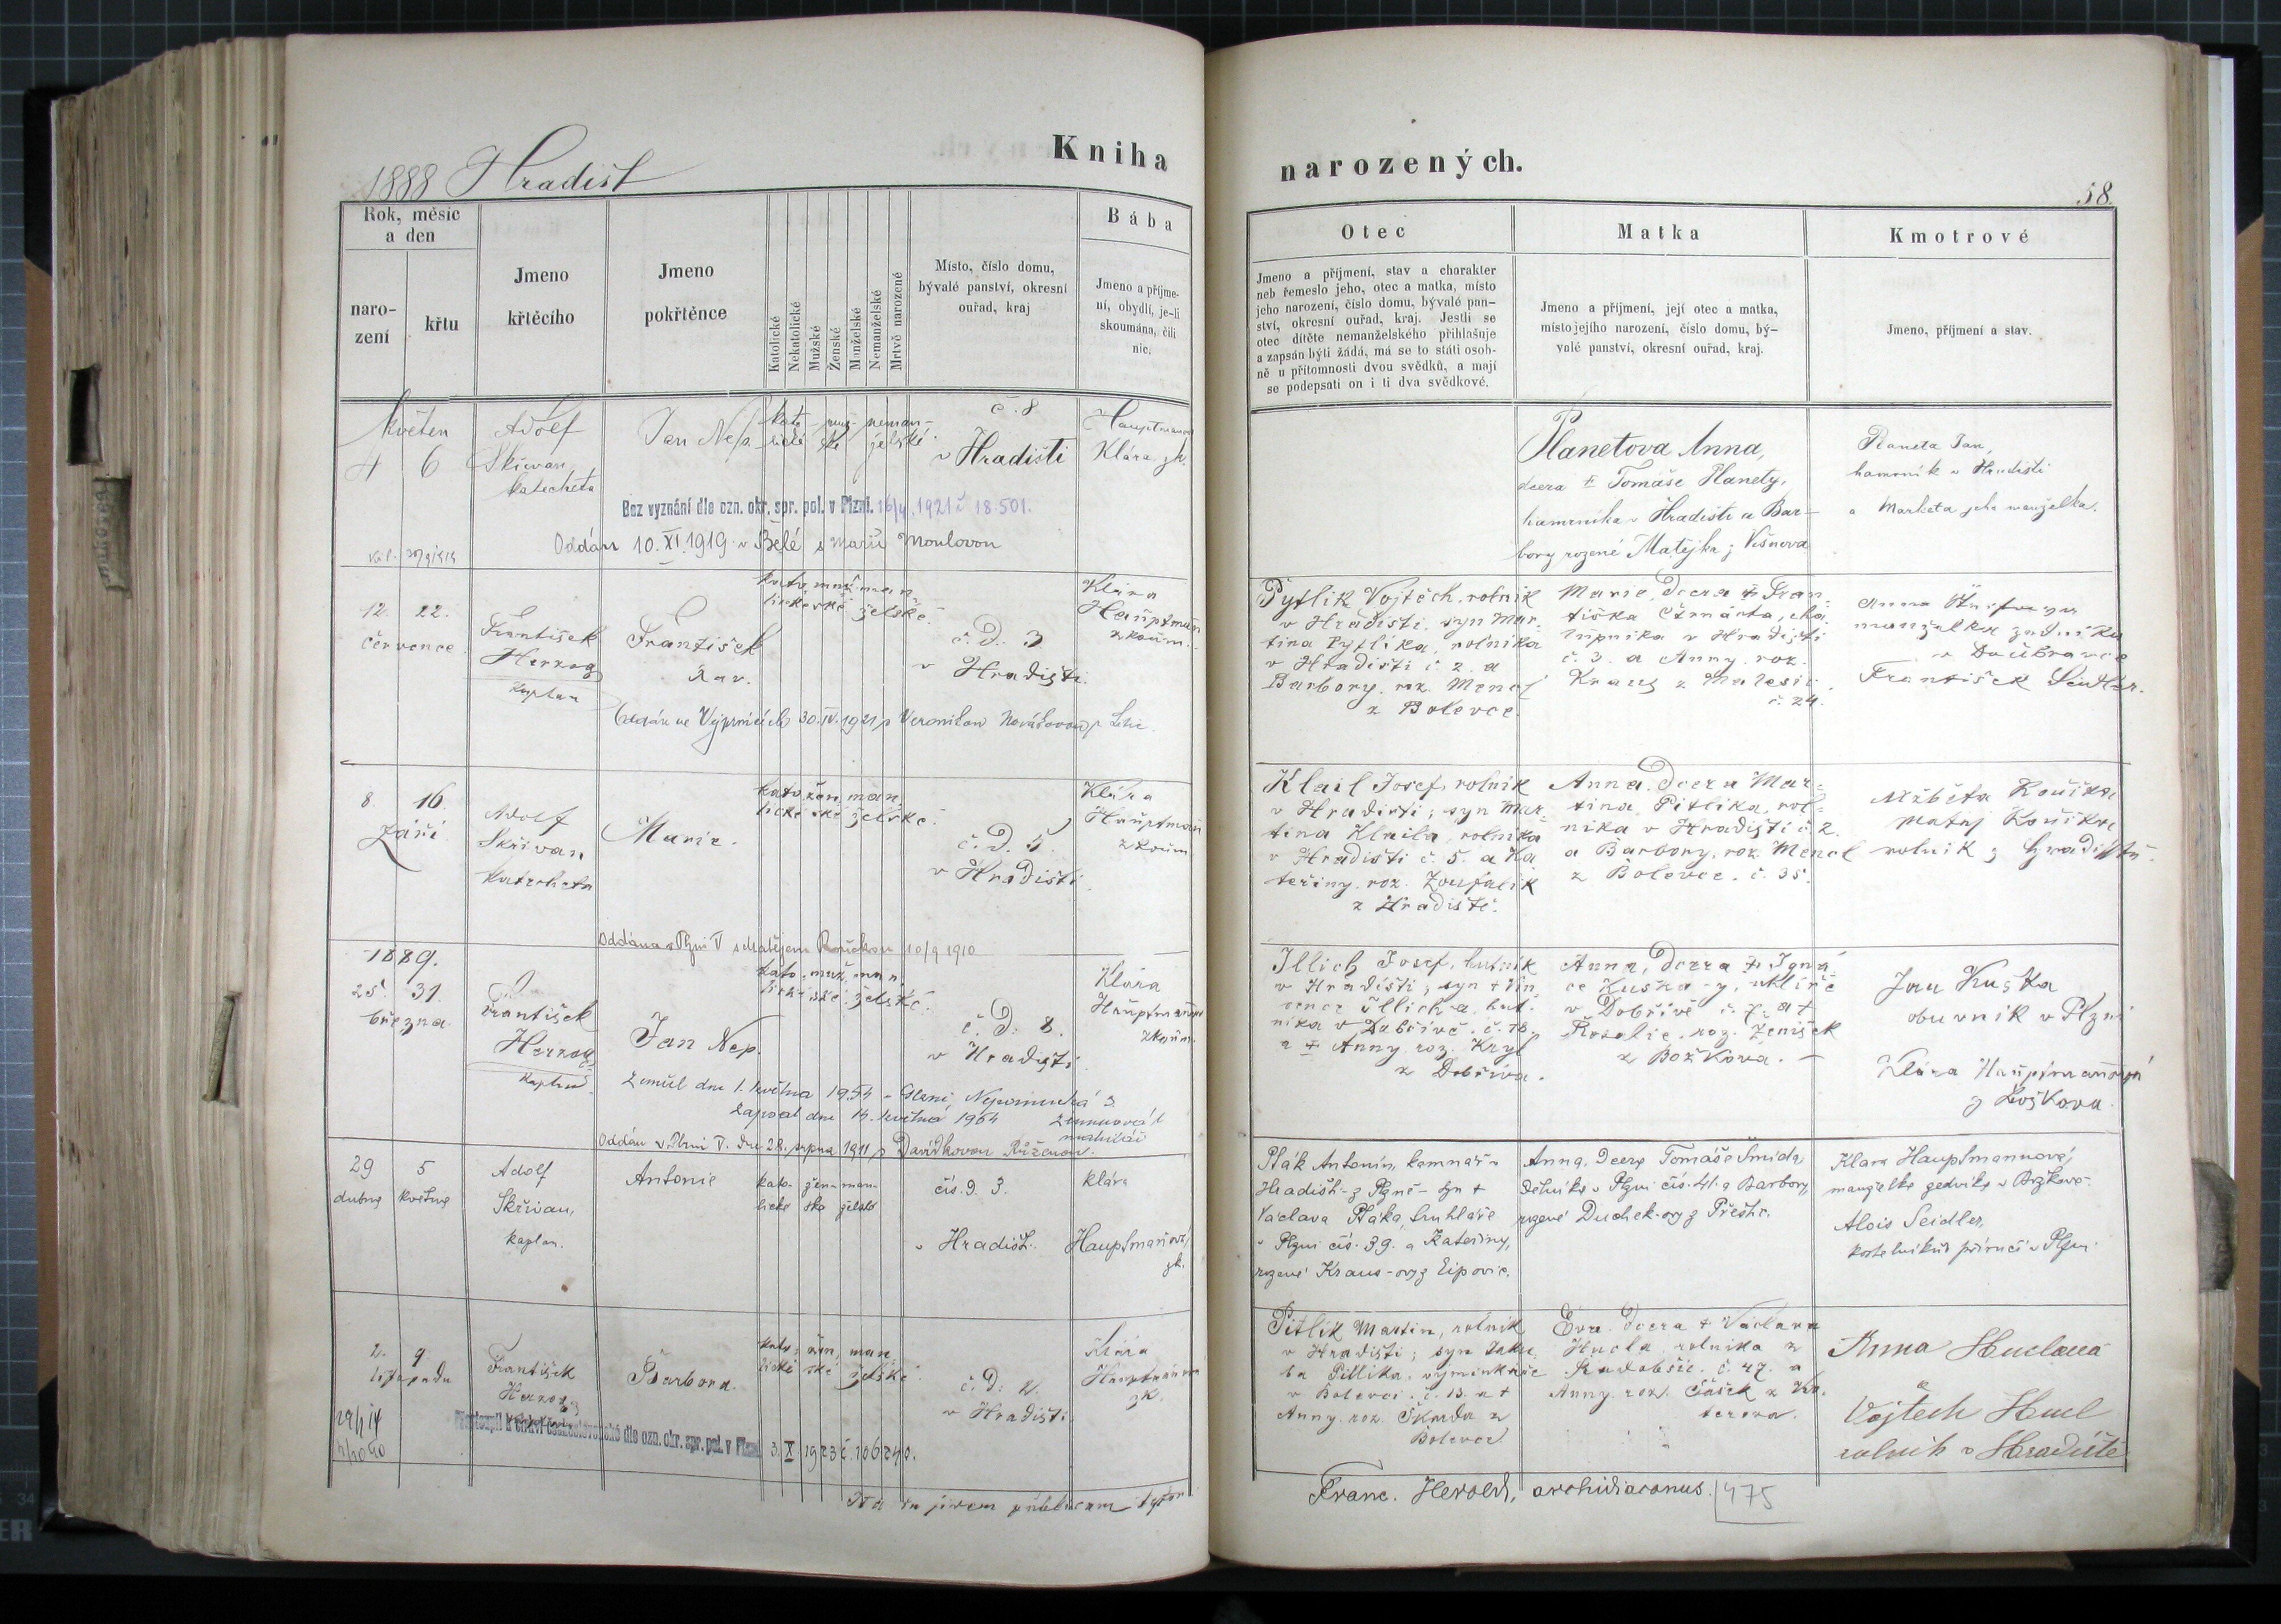 1888 Hradišt
Kniha
narozených.
58.
Rok, měsíc
a den
naro-
zení
křtu
Jmeno
křtěcího
Jmeno
pokřtěnce
Katolické
Nekatolické
Mužské
Ženské
Manželské
Nemanželské
Mrtvě narozené
Místo, číslo domu,
bývalé panství, okresní
ouřad, kraj
Bába
Jmeno a příjme-
ní, obydlí, je-li
skoumána, čili
nic.
Otec
Jmeno a příjmení, stav a charakter
neb řemeslo jeho, otec a matka, místo
jeho narození, číslo domu, bývalé pan-
ství, okresní ouřad, kraj. Jestli se
otec dítěte nemanželského přihlašuje
a zapsán býti žádá, má se to státi osob-
ně u přítomnosti dvou svědků, a mají
se podepsati on i ti dva svědkové.
Matka
Jmeno a příjmení, její otec a matka,
místo jejího narození, číslo domu, bý-
valé panství, okresní ouřad, kraj.
Kmotrové
Jmeno, příjmení a stav.
Květen
4 6
Adolf
Skřivan,
katecheta
Jan Nep.
kato- muž- neman-
lické ské želské
č. 8
v Hradišti
Klára zk.
Planetova Anna,
dcera † Tomáše Planety,
hamrníka v Hradišti a Bar-
bory rozené Matějka z
Planeta Jan,
hamrník v Hradišti
a Marketa jeho manželka.
Bez vyznání dle ozn. okr. spr. pol. v Plzni. 16/4. 1921 č 18.501.
Oddán 10. XI. 1919 v Bělé s Marií Moulovou
12. 22.
července.
František
Herzog
kaplan
František
Xav.
kato- muž- man-
lické ské želské.
č. D. 3
v Hradišti.
Klára
Hauptman
zkoum.
Pytlík Vojtěch, rolník
v Hradišti, syn Mar-
tina Pytlíka, rolníka
v Hradišti č. 2. a
Barbory, roz. Mencl
z Bolevce.
Marie, dcera † Fran-
tiška
v Hradišti
č. 3. a Anny, roz.
Kraus z Malesic
č. 24.
Anna
manželka
v Doubravce
František Seidler.
Oddán ve Vejprnicích 30. IV. 1921 s Veronikou Novákovou
8. 16.
Září
Adolf
Skřivan
katecheta
Marie.
kato- žen- man-
lické ské želské.
č. D. 5.
v Hradišti
Klára
Hauptman
zkoum
Klail Josef, rolník
v Hradišti; syn Mar-
tina Klaila, rolníka
v Hradišti č. 5. a Ka
teřiny, roz. Zoufalík
z Hradiště.
Anna, dcera Mar-
tina Pitlíka, rol-
níka v Hradišti č. 2.
a Barbory, roz. Mencl
z Bolevce. č. 35.
Alžběta Kouška
Matej Kouška
rolník z Hradiště.
Oddána v Plzni V s Matějem Rouškou 10/9 1910
1889.
25. 31.
března.
František
Herzog
kaplan
Jan Nep.
kato- muž- man-
lické ské želské.
č. D. 8.
v Hradišti
Klára
Hauptmanova
zkoum.
Illich Josef, hutník
v Hradišti; syn † Vin
cence Illich-a, hut-
níka v Dobřívě č. 78.
a † Anny, roz. Kryl
z Dobříva.
Anna, dcera † Igná-
ce Kuška-y, uhlíře
v Dobřívě č. 7. a †
Rosalie, roz. Ženíšek
z Božkova. —
Jan Kuška
obuvník v Plzni
Klára Hauptmanová
z Božkova.
Zemřel dne 1. května 1954
Zapsal dne 14. května 1964
Oddán v Plzni V. dne 28. srpna 1911 s Davídkovou Růženou.
29 5
dubna května
Adolf
Skřivan,
kaplan.
Antonie
kato- žen- man-
lické ská želské
čís. d. 3.
v Hradišt.
Klára
Hauptmanová
zk.
Pták Antonín, kamnář v
Hradišt- z Plzně- syn †
Václava Ptáka, truhláře
v Plzni čís. 39. a Kateřiny,
rozené Kraus-ovy z Ejpovic.
Anna, dcera Tomáše Šmída,
dělníka v Plzni čís. 41. a Barbory,
rozené Duchek-ovy z Přeštic.
Klara Hauptmannová,
manželka zedníka v Božkově.
Alois Seidler,
kostelníkův příručí v Plzni.
2. 9
listopadu
František
Herzog
Barbora.
kato- žen- man-
lické ské želské.
v Hradišti
Klára
Hauptmanova
zk.
Pitlík Martin, rolník
v Hradišti; syn Jaku
ba Pitlíka, výminkáře
v Bolevci č. 13. a †
Anny, roz. Škarda z
Bolevce.
Eva, dcera † Václava
Hucla, rolníka z
Radobčic. č. 47. a
Anny, roz. Čášek z Ko-
terova.
Anna Huclová
a
Vojtěch Hucl
rolník v Hradiště
Přistoupil k církvi československé dle ozn. okr. spr. pol. v Plzni 3. X 1923 č. 106240.
Franc. Herold, archidiaconus.
475